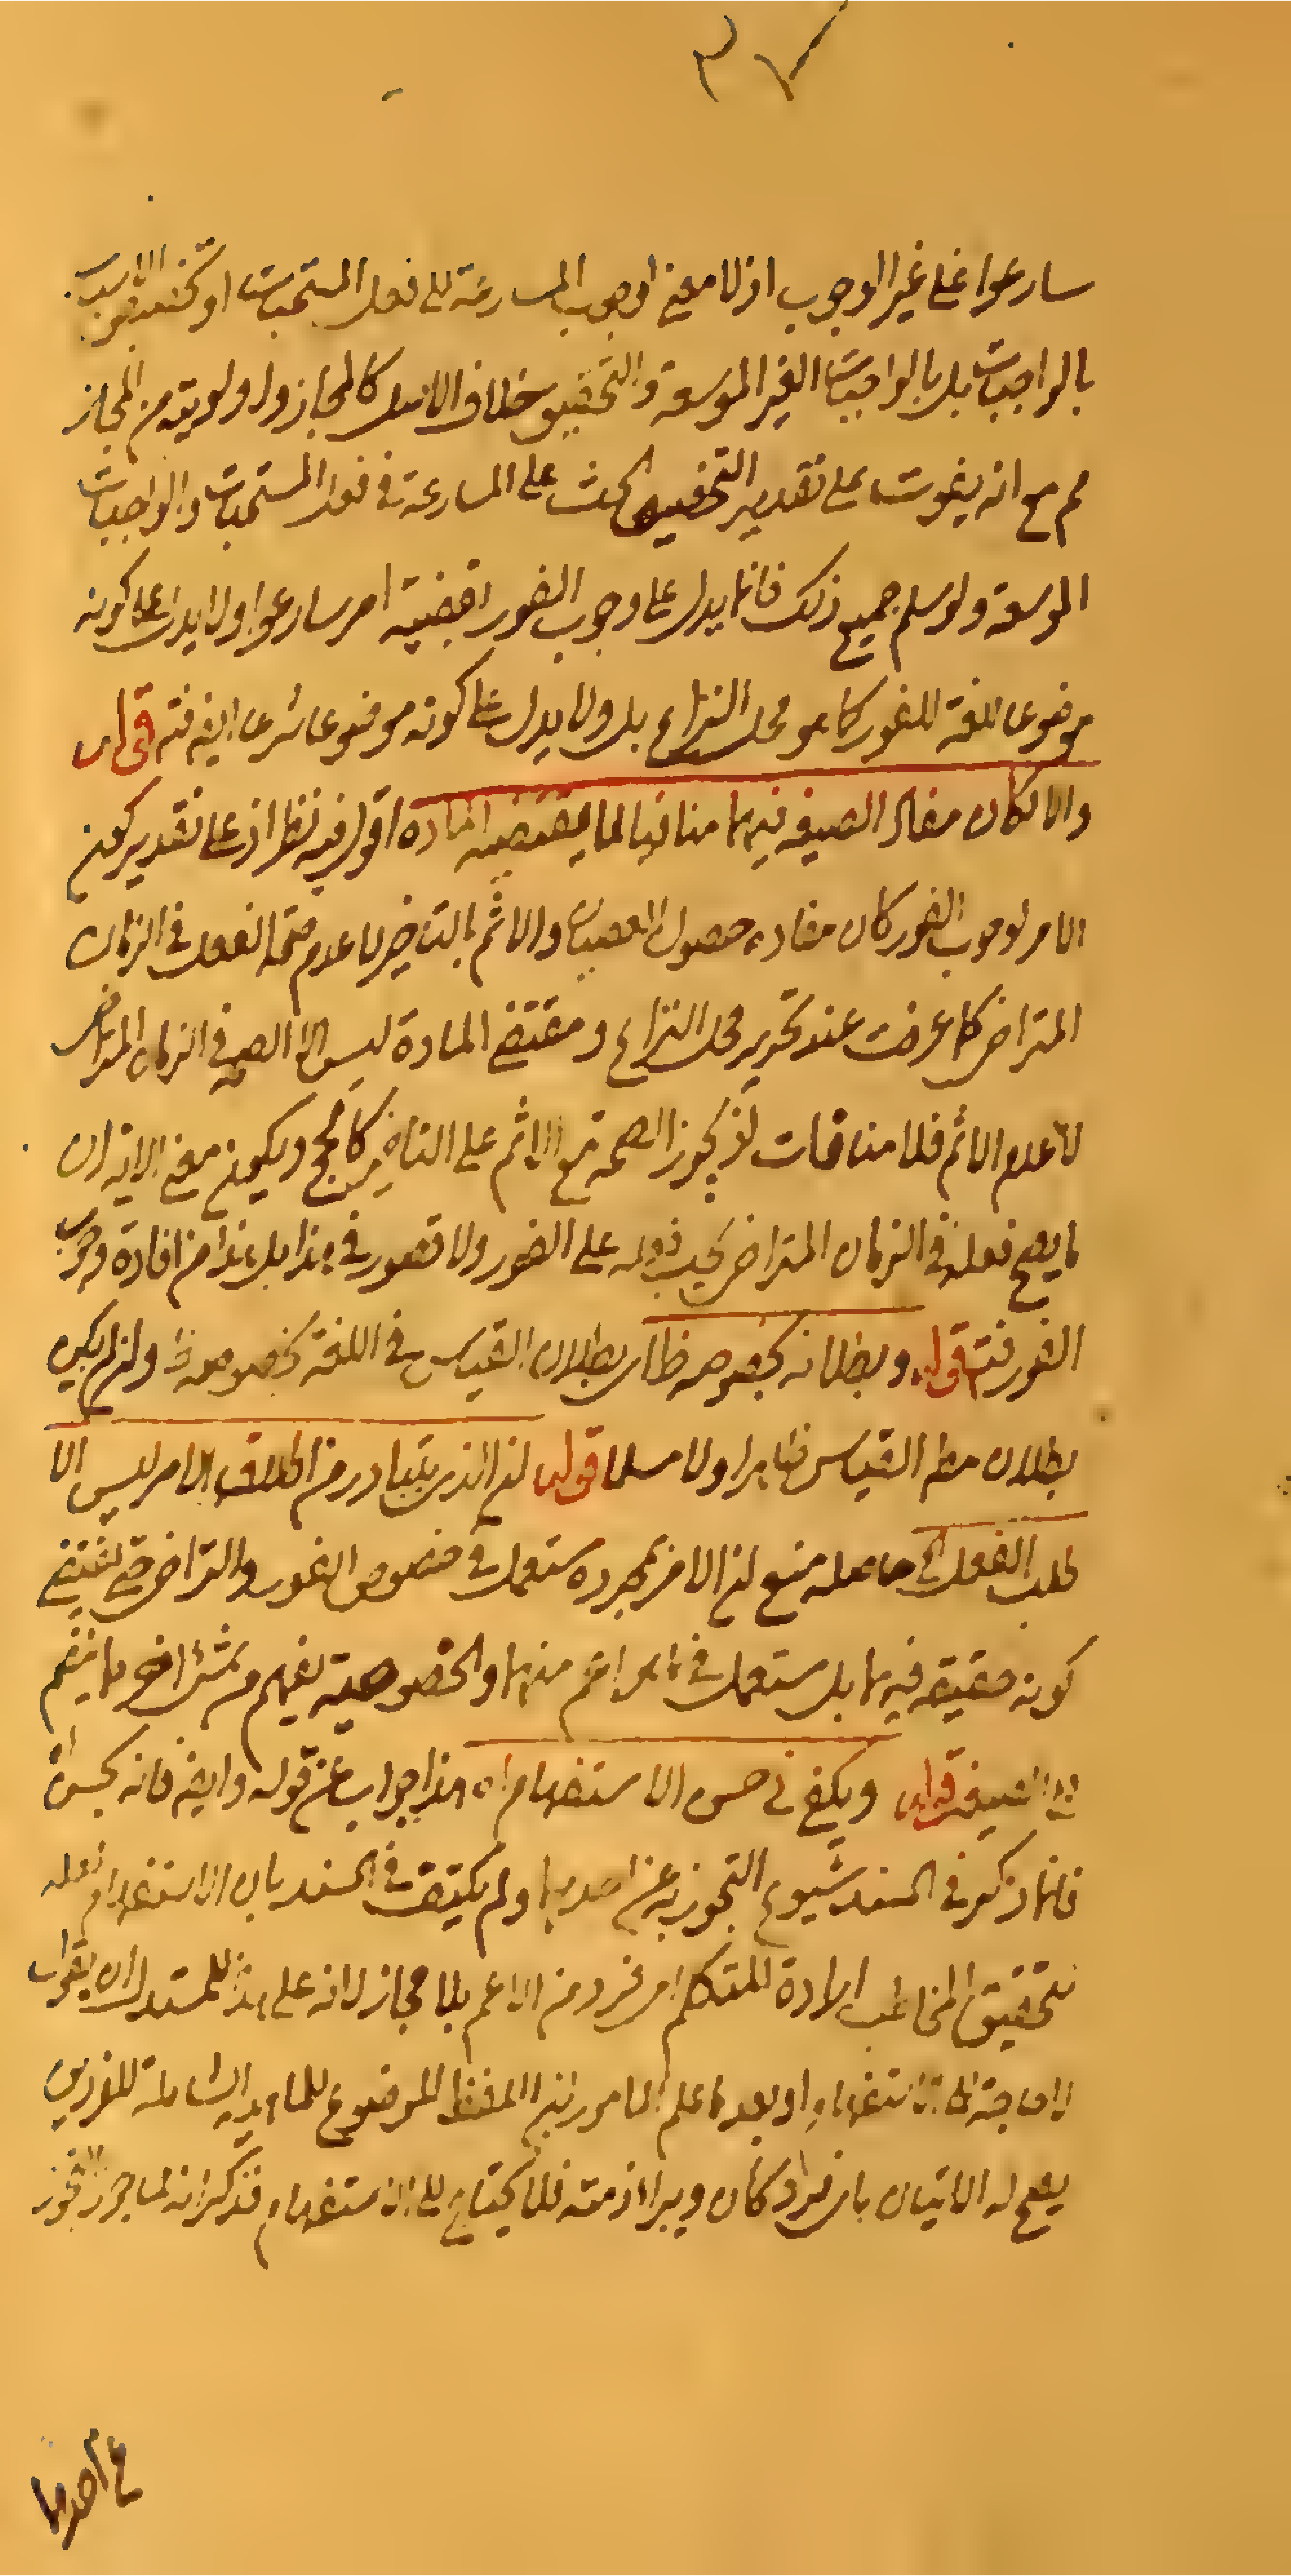 ٣٧
سارعوا على غير الوجوب اذ لا معنى لوجوب المسارعة الى فعل المستحبات او تخصيص الاسباب
بالواجبات بل بالواجبات الغير الموسعة والتخصيص خلاف الاصل كالمجاز واولويته من المجاز
مم مع انه يفوت على تقدير التخصيص الحث على المسارعة في فعل المستحبات والواجبات
الموسعة ولو سلم جميع ذلك فانما يدل على وجوب الفور بقضية امر سارعوا ولا يدل على كونه
موضوعا لغة للفور كما هو محل النزاع بل ولا يدل على كونه موضوعا شرعا ايضا فتم قوله
والا لكان مفاد الصيغه فيهما منافيا لما يقتضيه المادة اقول فيه نظر اذ على تقدير كون
الامر لوجوب الفور كان مفاده حصول العصيان والاثم بالتاخير لا عدم صحة الفعل في الزمان
المتراخى كما عرفت عند تحرير محل النزاع ومقتضى المادة ليس الا الصحة في الزمان المتراخى
لا عدم الاثم فلا منافات اذ يجوز الصحة مع الاثم على التاخير كالحج ويكون معنى الاية ان
ما يصح فعله في الزمان المتراخى يجب فعله على الفور ولا قصور في هذا بل هذا من افادة وجوب
الفور فتم قوله وبطلانه بخصوصه ظا اى بطلان القياس في اللغة بخصوصه ظا وان لم يكن
بطلان مط القياس ظاهرا ولا مسلما قوله ان الذى يتبادر من اطلاق الامر ليس الا
طلب الفعل الخ حاصله منع ان الامر بمجرده يستعمل في خصوص الفور والتراخى حتى يقتضى
كونه حقيقة فيهما بل يستعمل في ما هو اعم منهما والخصوصية يفهم من شئ اخر ما ينضم
الى الصيغة قوله ويكفى في حسن الاستفهام اه هذا جواب عن قوله وايضا فانه يحسن اه
فانما ذكر في السند شيوع التجوز به عن احدهما ولم يكتف في السند بان الاستفهام لعله
لتحقيق المخاطب ارادة المتكلم اى فرد من الاعم بلا مجاز لانه على هذا للمستدل ان يقول
لا حاجة الى الاستفهام اذ بعد ما علم المامور ان اللفظ الموضوع للماهية الشاملة للفردين
يصح له الاتيان باى فرد كان ويبرا ذمته فلا يحتاج الى الاستفهام فذكر انه لما جوز التجوز
ع احدهما